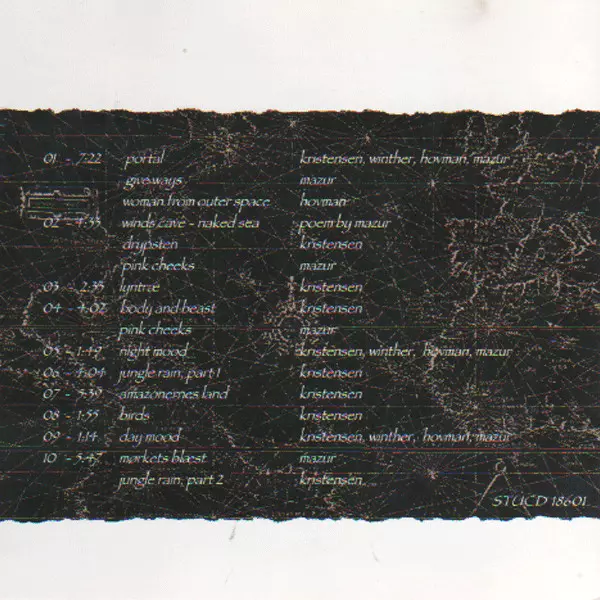 01 - 7:22 portal kristensen, winther, hovman, mazur
giveways mazur
woman from outer space hovman
02 - 4:55 winds cave - naked sea poem by mazur
drypsten kristensen
pink cheeks mazur
03 - 2:35 lyntræ kristensen
04 - 4:02 body and beast kristensen
pink cheeks mazur
05 - 1:49 night mood kristensen, winther, hovman, mazur
06 - 4:04 jungle rain, part 1 kristensen
07 - 5:59 amazonernes land kristensen
08 - 1:55 birds kristensen
09 - 1:14 day mood kristensen, winther, hovman, mazur
10 - 5:47 mørkets blæst mazur
jungle rain, part 2 kristensen
STUCD 18601